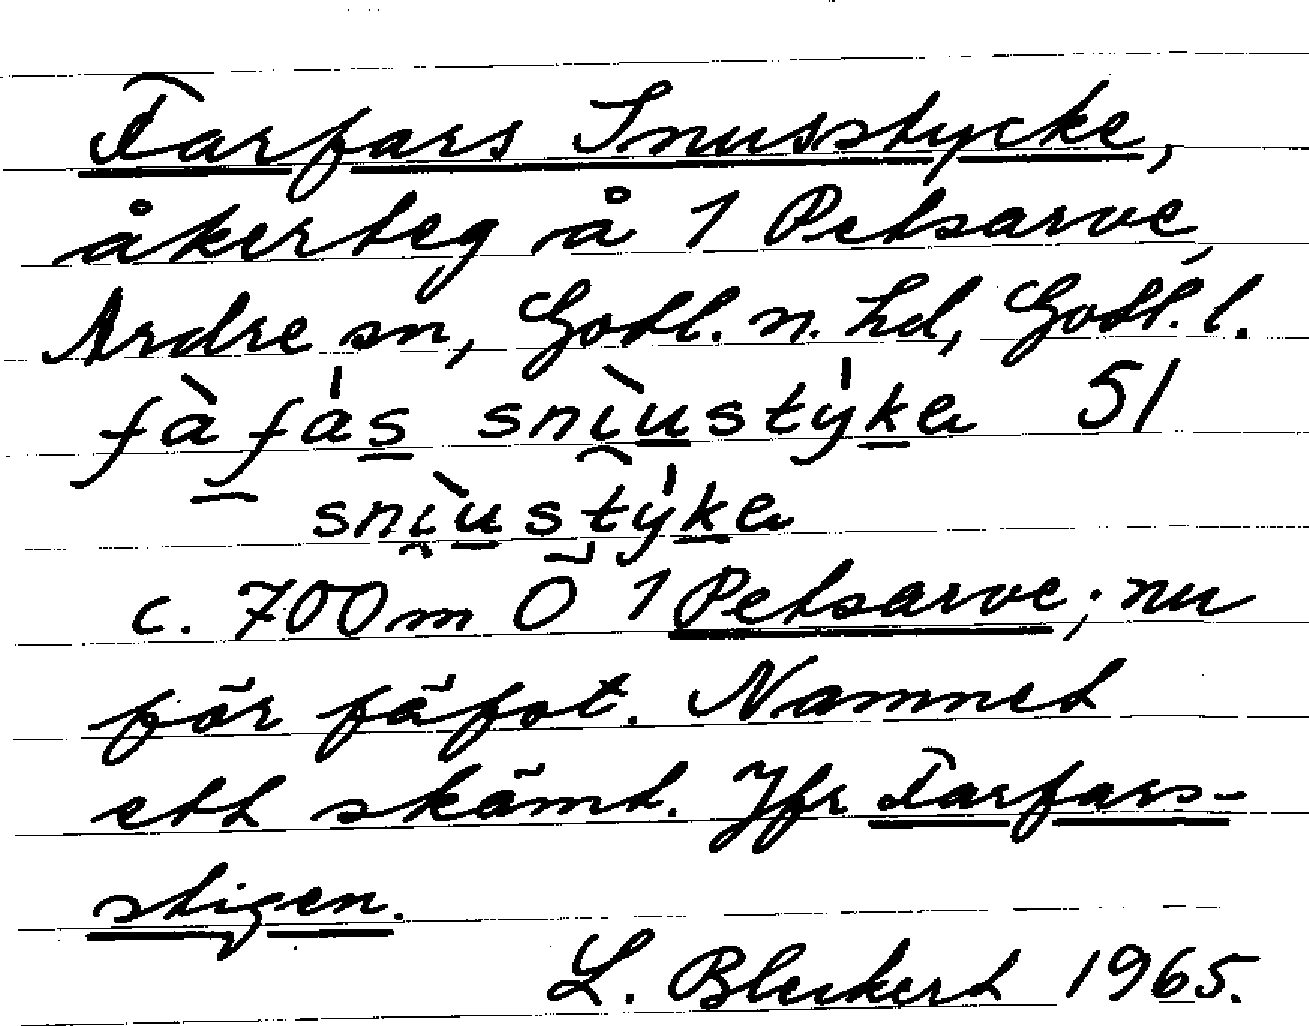 Farfars Snusstycke,
åkerteg å 1 Petsarve,
Ardre sn, Gotl. n. hd, Gotl. l.
fàfás snìustýke 51
snìustýke
c. 700 m Ö 1 Petsarve; nu
för fäfot. Namnet
ett skämt. Jfr Farfars-
stigen.
L. Bleckert 1965.